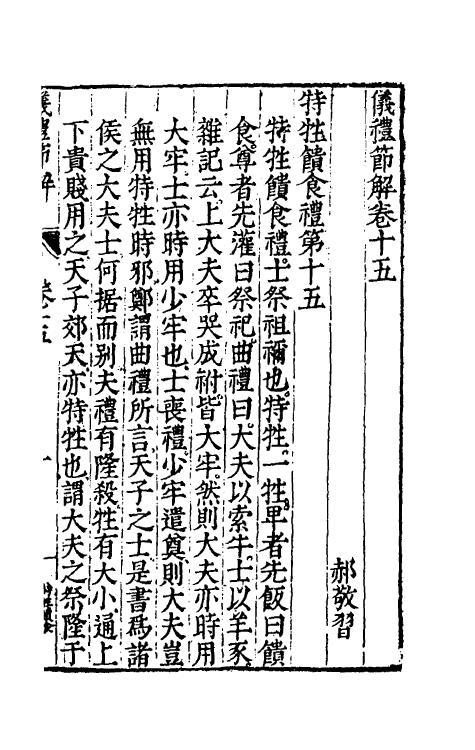 儀禮節解卷十五
郝敬習
特牲饋食禮第十五
特牲饋食禮士祭祖禰也特牲一牲卑者先飯曰饋
食尊者先灌曰祭祀曲禮曰大夫以索牛士以羊豕
雜記云上大夫卒哭成祔皆大牢然則大夫亦時用
大牢士亦時用少牢也士喪禮少牢遣奠則大夫豈
無用特牲時邪鄭謂曲禮所言天子之士是書為諸
侯之大夫士何据而别夫禮有隆殺牲有大小通上
下貴賤用之天子郊天亦特牲也謂大夫之祭隆于
儀禮節解
卷十五
一